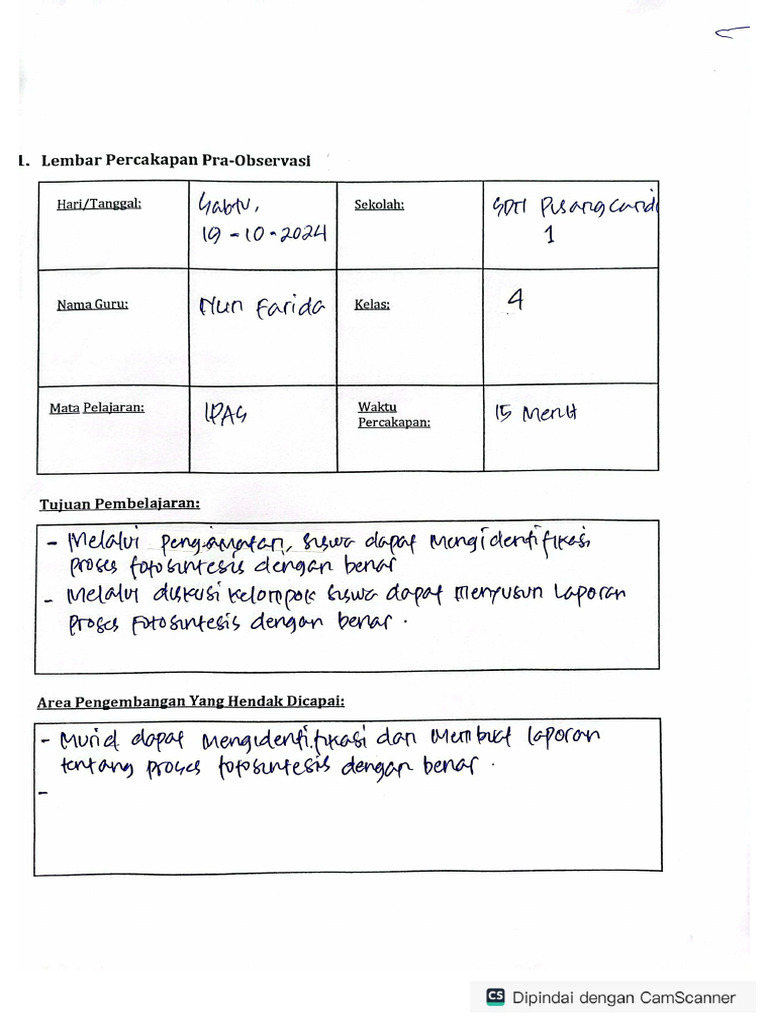 1. Lembar Percakapan Pra-Observasi
Hari/Tanggal:
Sabtu,
19-10-2024
Sekolah:
SDN Pisangcandi
1
Nama Guru:
Nun Farida
Kelas:
4
Mata Pelajaran:
IPAS
Waktu
Percakapan:
15 Menit
Tujuan Pembelajaran:
- Melalui pengamatan, siswa dapat mengidentifikasi
proses fotosintesis dengan benar
- Melalui diskusi kelompok siswa dapat menyusun laporan
proses fotosintesis dengan benar.
Area Pengembangan Yang Hendak Dicapai:
- Murid dapat mengidentifikasi dan membuat laporan
tentang proses fotosintesis dengan benar.
-
CS Dipindai dengan CamScanner